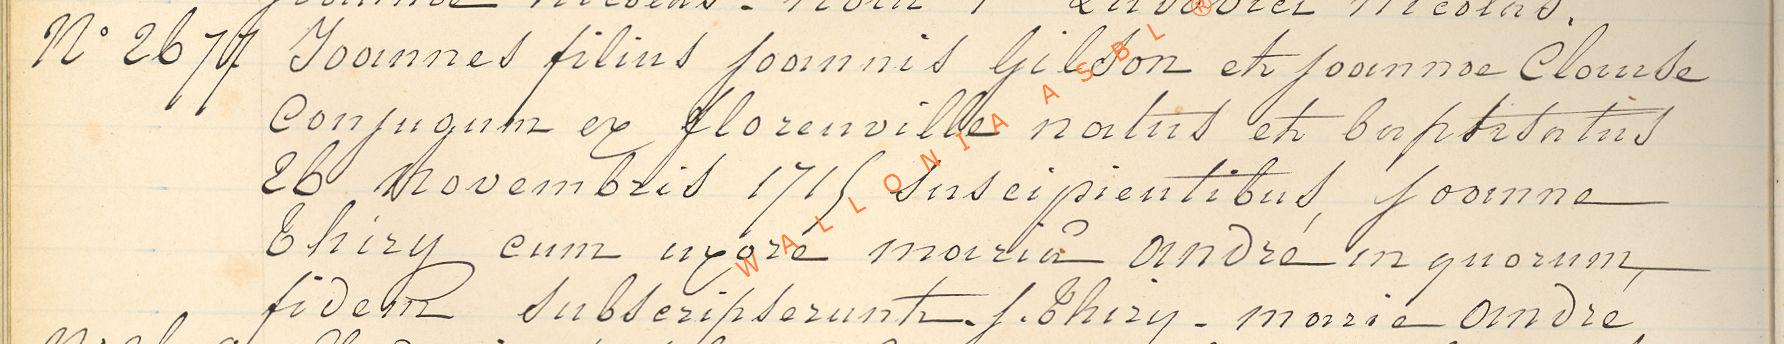 N° 2677 Joannes filius joannis Gilson et joannæ Clause
Conjugum ex florenville natus et baptisatus
26 Novembris 1715 suscipientibus, joanne
Thiry cum uxore mariâ André in quorum,
fidem subscripserunt. j. Thiry - marie André,
WALLONIA ASBL ®